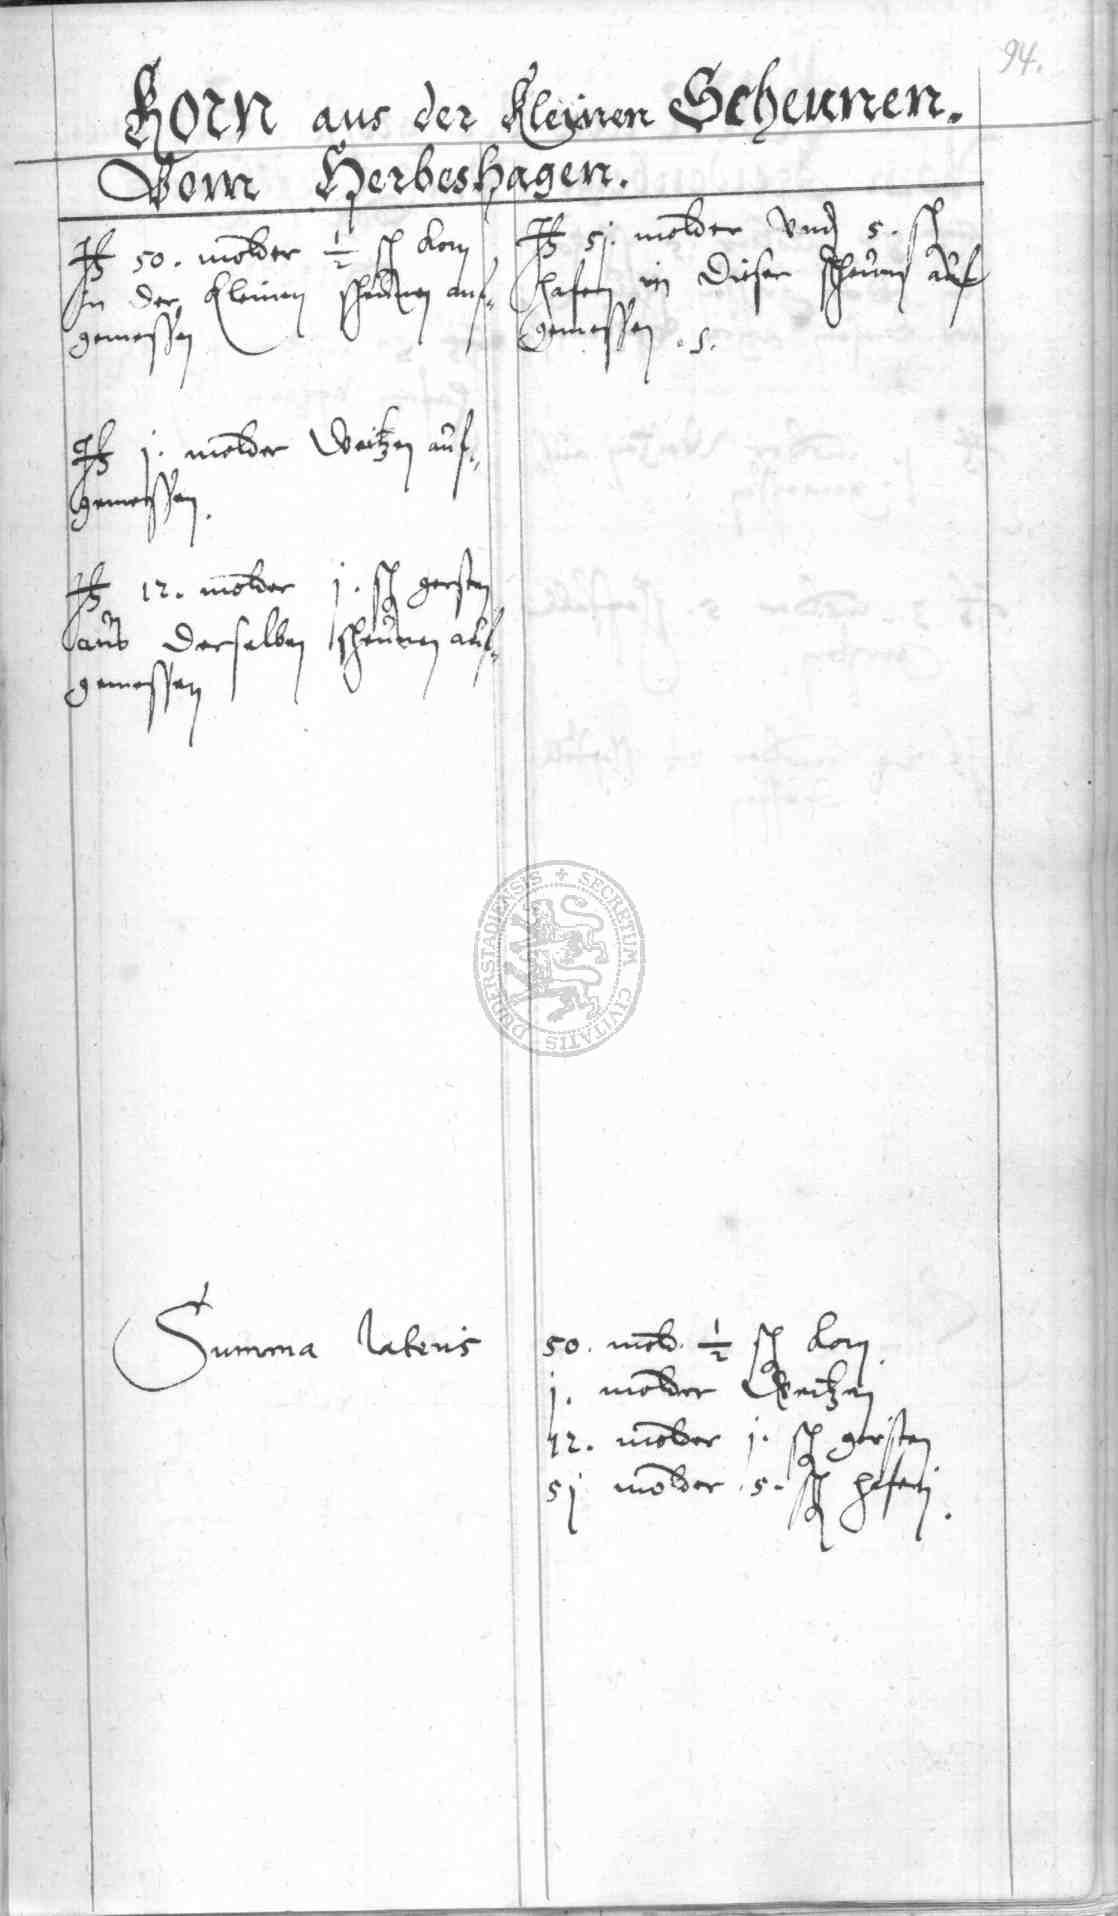 94.
Korn aus der Kleinen Scheunen.
Vom Herbeshagen.
It 50. molder ½ sch Korn
In der Kleinen scheunen auf-
gemessen
It j. molder Weitzen auf-
gemessen.
It 12. molder j. sch gersten
aus derselben scheunen auf-
gemessen
It 5j. molder Vnd 5. sch
hafern in dieser scheuns auf
gemessen .s.
Summa lateris
50. mold. ½ sch Korn.
j. molder Weitzen
12. molder j. sch gersten
5j molder 5. sch hafern.
SECRETUM CIVITATIS DUDERSTADIENSIS